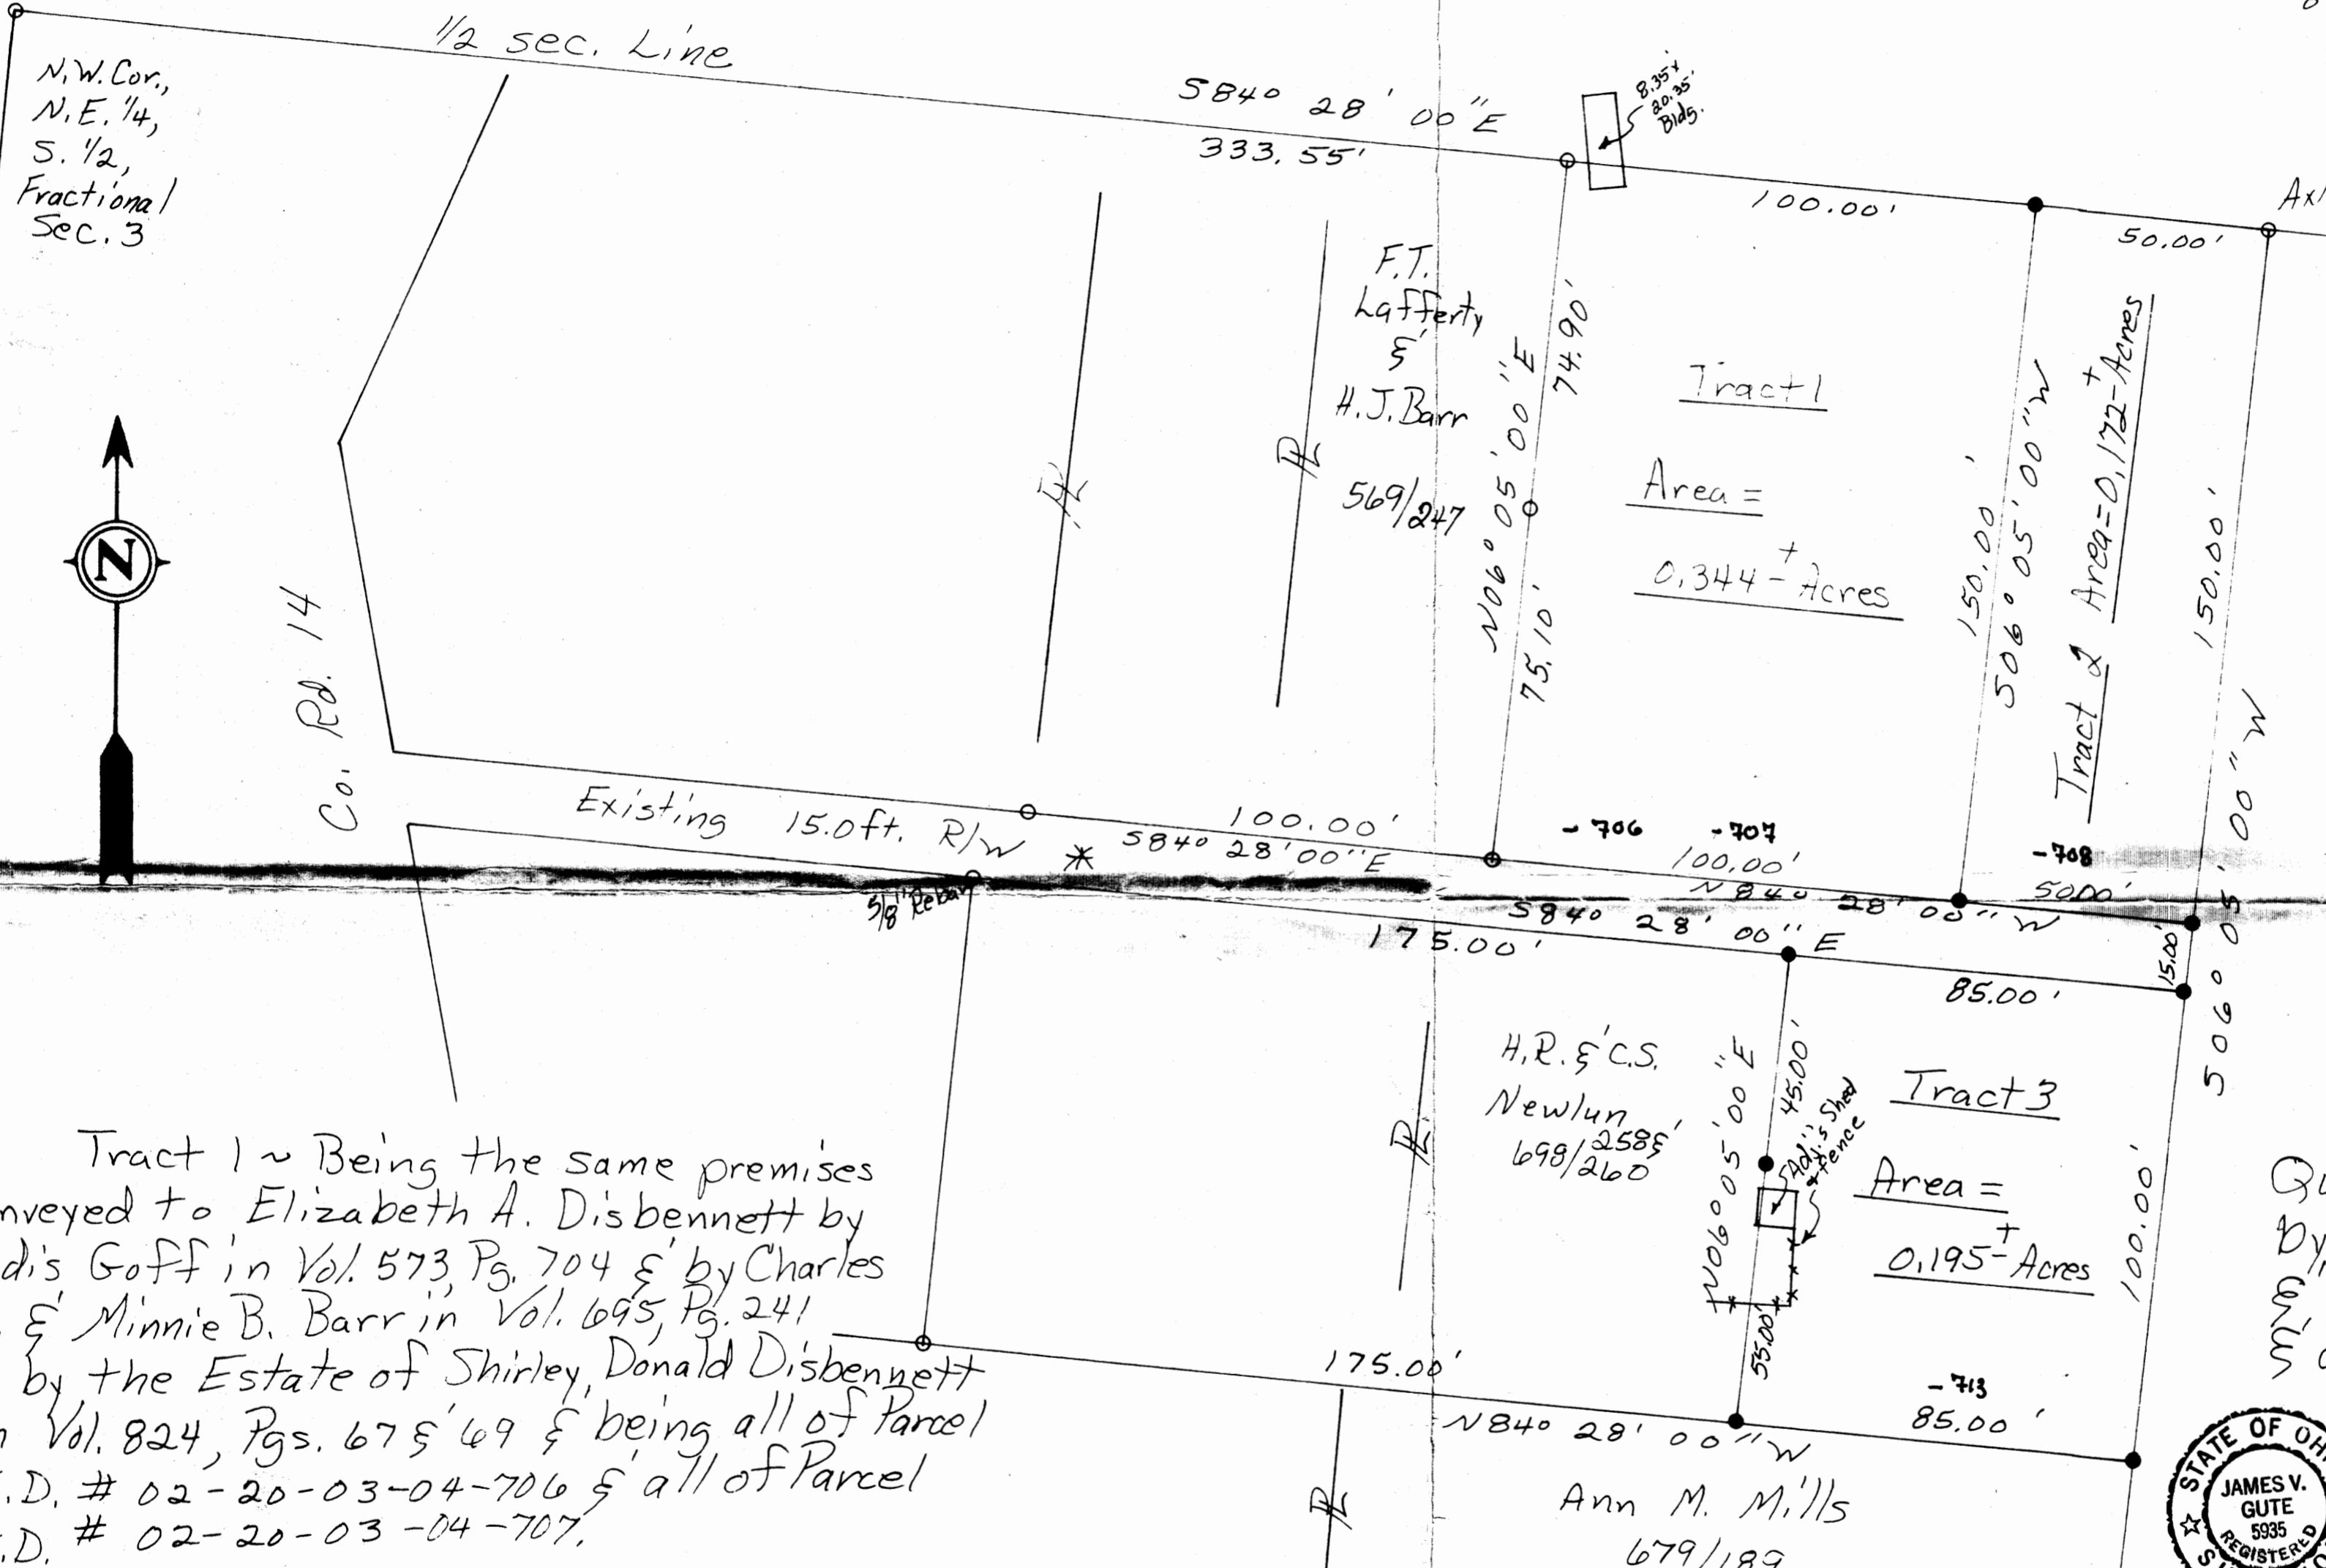 1/2 sec. Line
N.W. Cor.,
N.E. 1/4,
S. 1/2,
Fractional
Sec. 3
S84° 28' 00" E
333.55'
8.35' x
20.35'
Bldg.
100.00'
50.00'
F.T.
Lafferty
&
H.J. Barr
569/247
PL
PL
N06° 05' 00" E
74.90'
75.10'
Tract 1
Area =
0.344 ± Acres
150.00'
S06° 05' 00" W
Tract 2 Area = 0.172 ± Acres
150.00'
S06° 05' 00" W
N
Co. Rd. 14
Existing 15.0 ft. R/W
*
100.00'
S84° 28' 00" E
-706
-707
-708
100.00'
N84° 28' 00" W
50.00'
5/8" Rebar
S84° 28' 00" E
175.00'
85.00'
15.00'
H.R. & C.S.
Newlun
698/258 &
260
PL
N06° 05' 00" E
45.00'
Adj's Shed
& Fence
55.00'
Tract 3
Area =
0.195 ± Acres
100.00'
Tract 1 ~ Being the same premises
nveyed to Elizabeth A. Disbennett by
dis Goff in Vol. 573, Pg. 704 & by Charles
& Minnie B. Barr in Vol. 695, Pg. 241
by the Estate of Shirley Donald Disbennett
Vol. 824, Pgs. 67 & 69 & being all of Parcel
.D. # 02-20-03-04-706 & all of Parcel
.D. # 02-20-03-04-707.
175.00'
N84° 28' 00" W
-713
85.00'
PL
Ann M. Mills
679/189
STATE OF OH
JAMES V.
GUTE
5935
REGISTERED